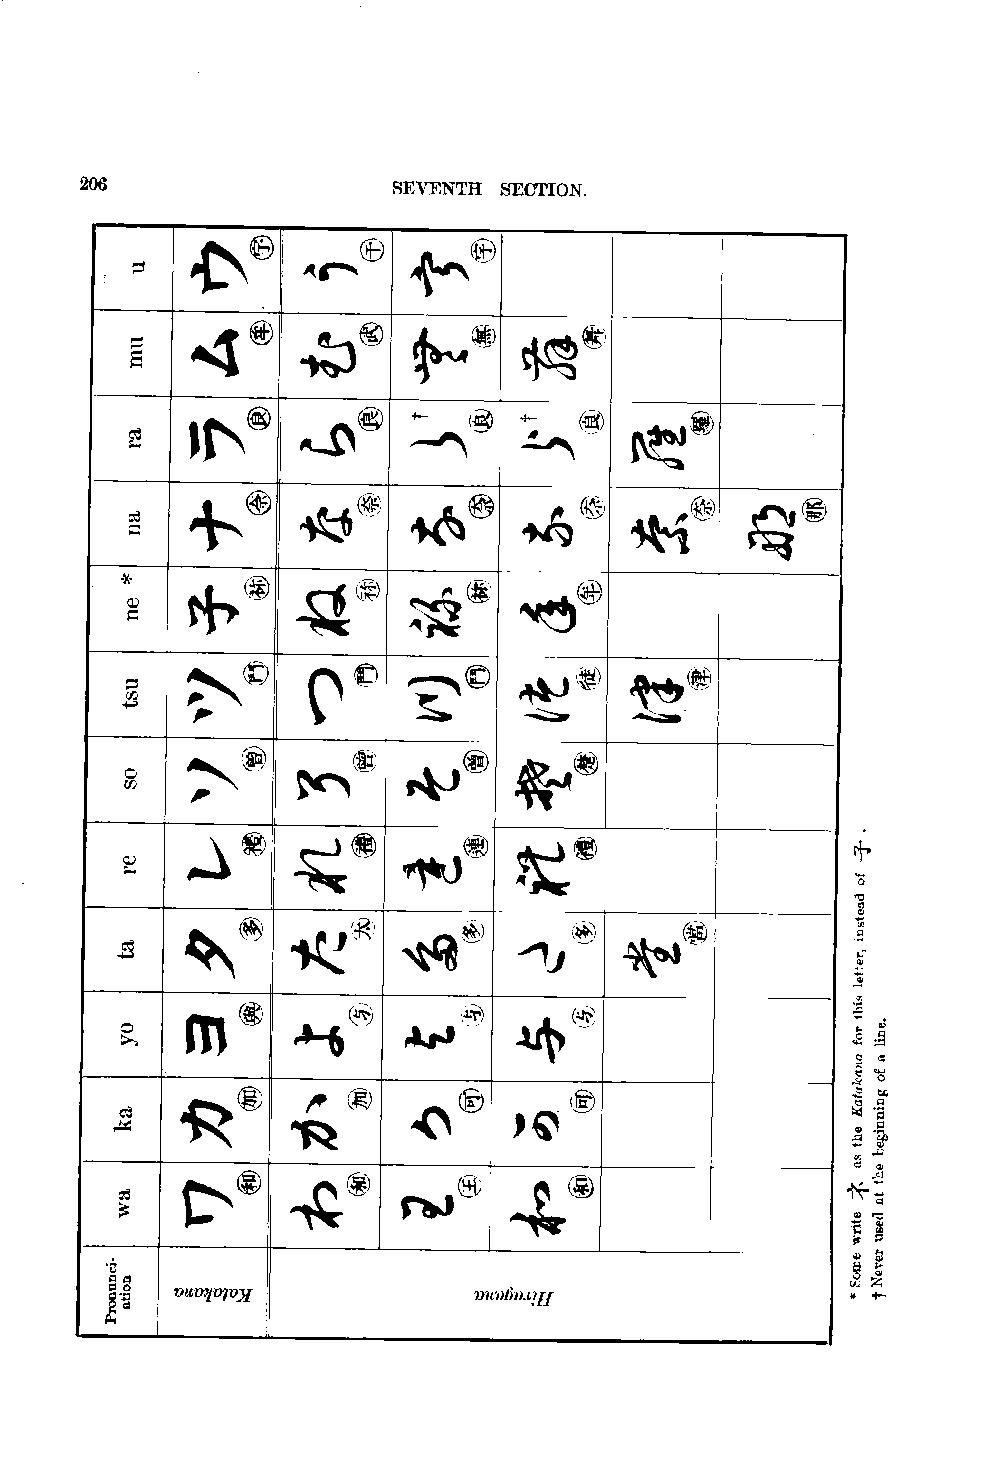 206
SEVENTH SECTION.
Pronunci-
ation
wa ka yo ta re so tsu ne * na ra mu u
Katakana
ワ 和 カ 加 ヨ 與 タ 多 レ 禮 ソ 曽 ツ 門 子 祢 ナ 奈 ラ 良 ム 牟 ウ 宇
Hiragana
わ 和 か 加 よ 与 た 太 れ 禮 そ 曽 つ 門 ね 祢 な 奈 ら 良 む 武 う 于
王 可 与 多 連 曽 門 祢 奈 † 良 無 宇
和 可 与 多 禮 楚 徒 年 奈 † 良 舞
當 津 奈 羅
那
* Some write ネ as the Katakana for this letter, instead of 子.
† Never used at the beginning of a line.